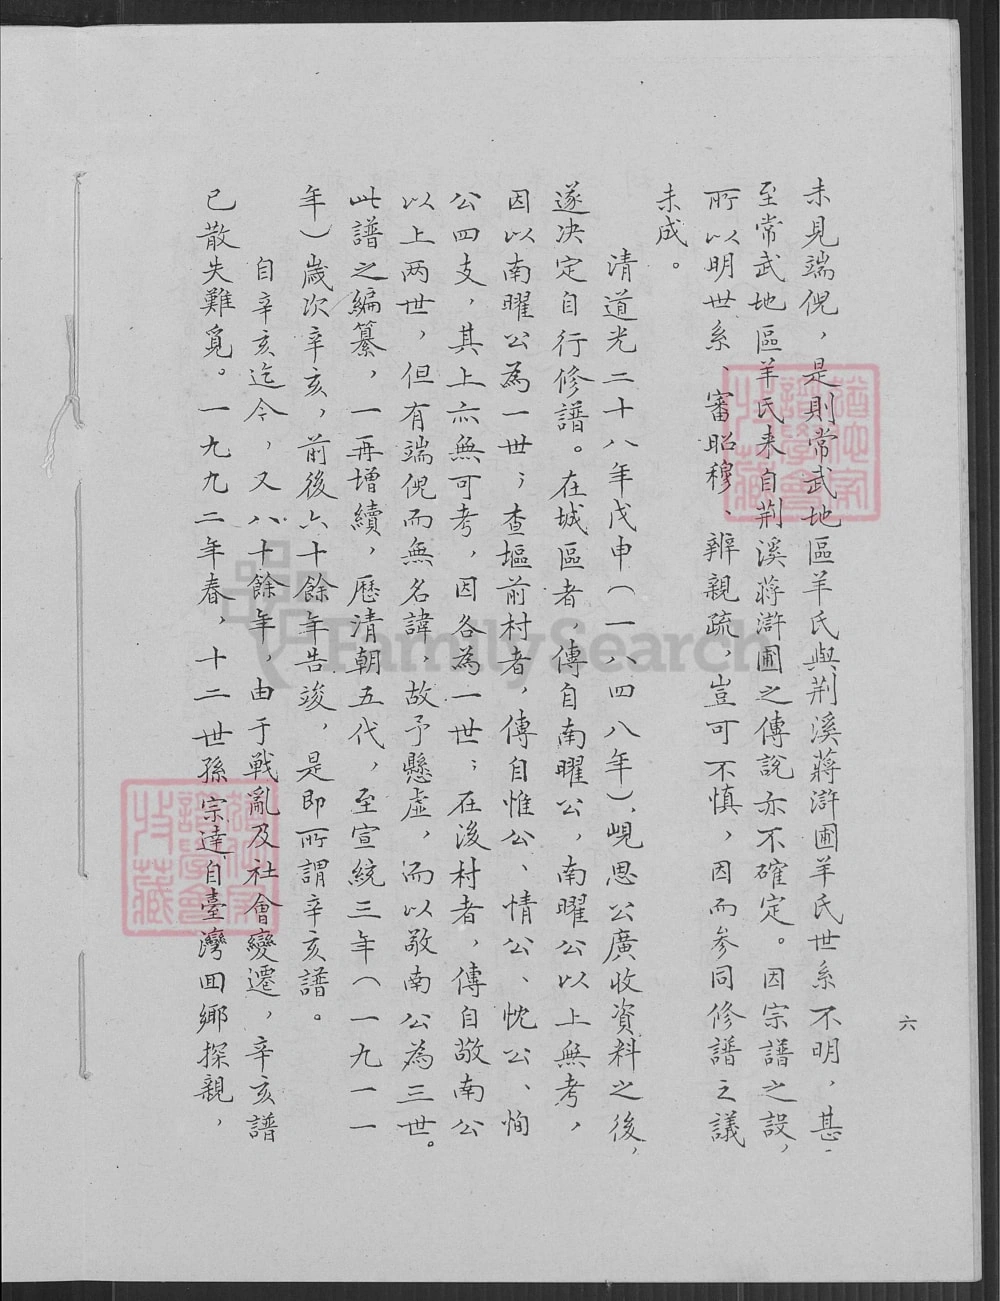 未見端倪，是則常武地區羊氏與荆溪蔣滸圃羊氏世系不明，甚
至常武地區羊氏来自荆溪蔣滸圃之傳說亦不確定。因宗譜之設，
所以明世系、審昭穆、辨親疏，豈可不慎，因而参同修譜之議
未成。
清道光二十八年戊申（一八四八年），峴思公廣收資料之後，
遂决定自行修譜。在城區者，傳自南曜公，南曜公以上無考，
因以南曜公為一世；查塸前村者，傳自惟公、情公、忱公、恂
公四支，其上亦無可考，因各為一世；在後村者，傳自敬南公
以上两世，但有端倪而無名諱，故予懸虛，而以敬南公為三世。
此譜之編纂，一再增續，歷清朝五代，至宣統三年（一九一一
年）歲次辛亥，前後六十餘年告竣，是即所謂辛亥譜。
自辛亥迄今，又八十餘年，由于戰亂及社會變遷，辛亥譜
已散失難覓。一九九二年春，十二世孫宗達自臺灣回鄉探親，
六
FamilySearch